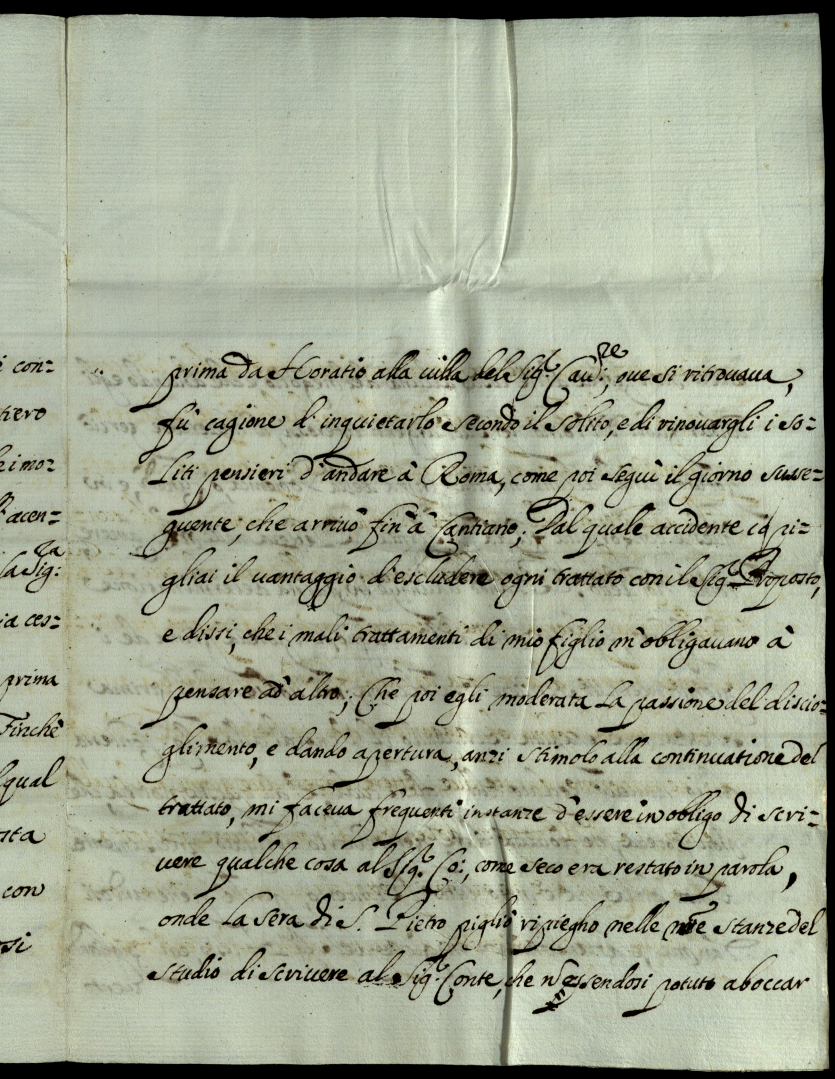 i con=
tiero
e i mo=
acen=
la Sig:ra
ia ces=
prima
Finchè
qual
sta
con
si
prima da Horatio alla uilla del Sig.r Cau:re, oue si ritrouaua,
fù cagione d'inquietarlo secondo il solito, e di rinouargli i so=
liti pensieri d'andare à Roma, come poi seguì il giorno susse=
guente, che arriuò fin'à Cantiano; Dal quale accidente io pi=
gliai il uantaggio d'escludere ogni trattato con il Sig.r Proposto,
e dissi, che i mali trattamenti di mio figlio m'obligauano à
pensare ad altro; Che poi egli moderata la passione del discio=
glimento, e dando apertura, anzi stimolo alla continuatione del
trattato, mi faceua frequenti instanze d'essere in obligo di scri=
uere qualche cosa al Sig.r Co:, come seco era restato in parola,
onde la sera di S. Pietro pigliò ripiegho nelle nre stanze del
studio di scriuere al Sig.r Conte, che nõ essendosi potuto aboccar